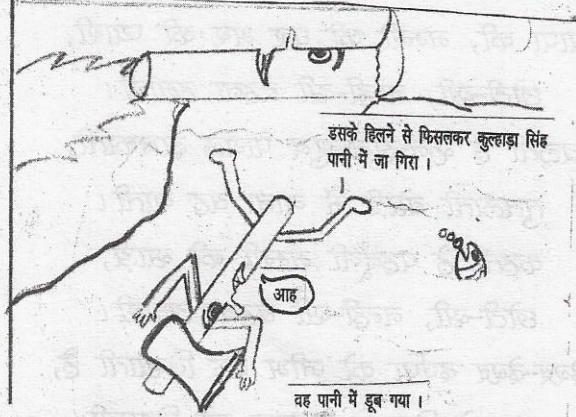 डसके हिलने से फिसलकर कुल्हाड़ा सिंह
पानी में जा गिरा ।
आह
वह पानी में डूब गया ।